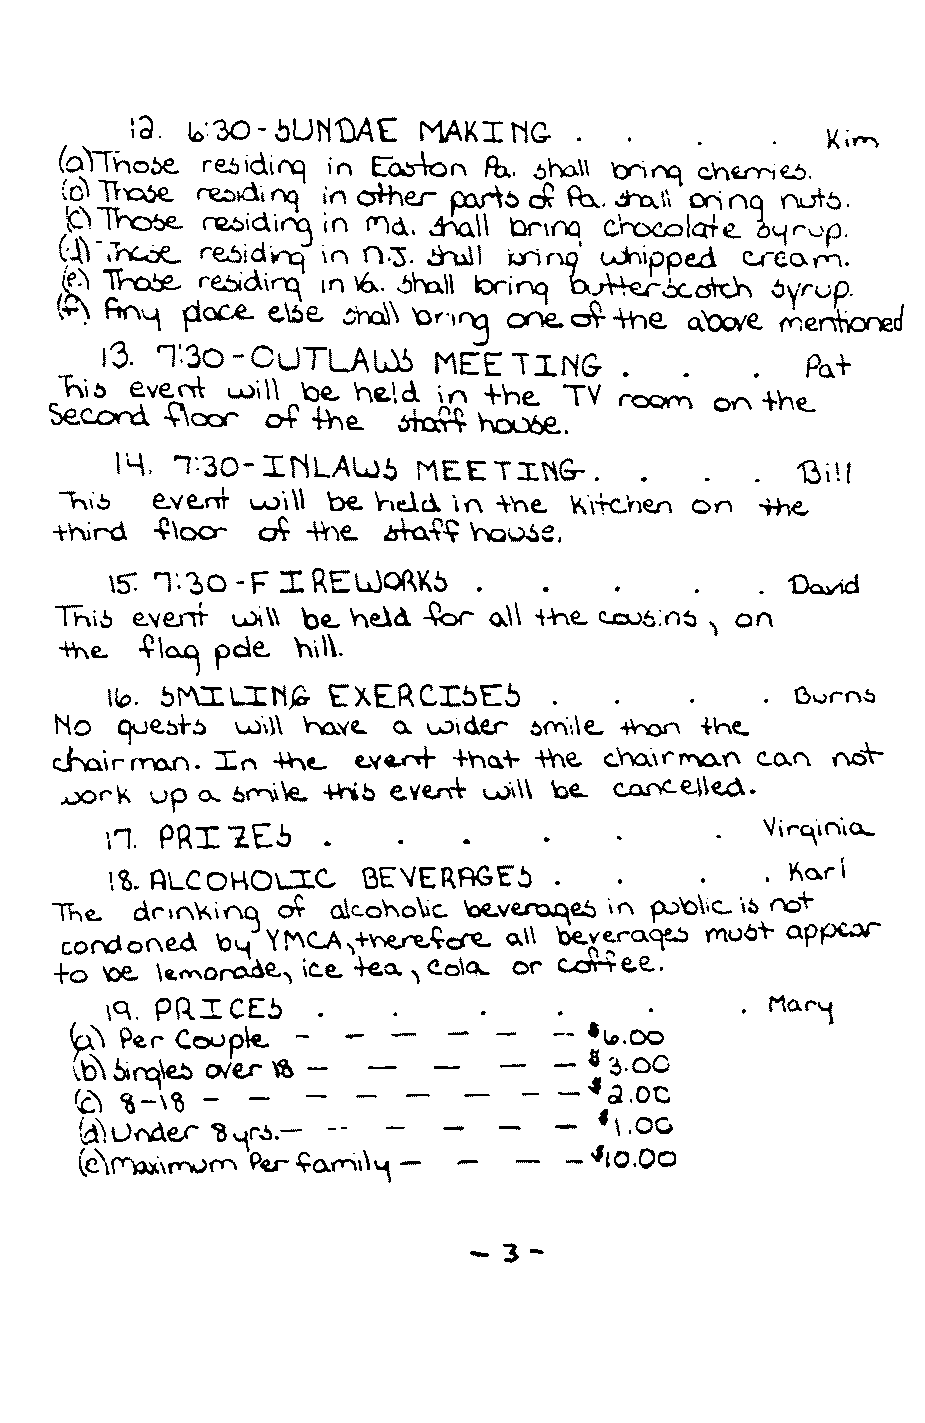 12. 6:30-SUNDAE MAKING . . . . Kim
(a) Those residing in Easton Pa. shall bring cherries.
(b) Those residing in other parts of Pa. shall bring nuts.
(c) Those residing in Md. shall bring chocolate syrup.
(d) Those residing in N.J. shall bring whipped cream.
(e) Those residing in Va. shall bring butterscotch syrup.
(f) Any place else shall bring one of the above mentioned
13. 7:30-OUTLAWS MEETING . . . Pat
This event will be held in the TV room on the
second floor of the staff house.
14. 7:30-INLAWS MEETING . . . . Bill
This event will be held in the kitchen on the
third floor of the staff house.
15. 7:30-FIREWORKS . . . . . David
This event will be held for all the cousins, on
the flag pole hill.
16. SMILING EXERCISES . . . . Burns
No guests will have a wider smile than the
chairman. In the event that the chairman can not
work up a smile this event will be cancelled.
17. PRIZES . . . . . . Virginia
18. ALCOHOLIC BEVERAGES . . . . Karl
The drinking of alcoholic beverages in public is not
condoned by YMCA, therefore all beverages must appear
to be lemonade, ice tea, cola or coffee.
19. PRICES . . . . . . Mary
(a) Per Couple - - - - - -- $6.00
(b) Singles over 18 - - - - - - $3.00
(c) 8-18 - - - - - - - - - $2.00
(d) Under 8 yrs. - -- - - - - $1.00
(e) Maximum Per family - - - - $10.00
- 3 -